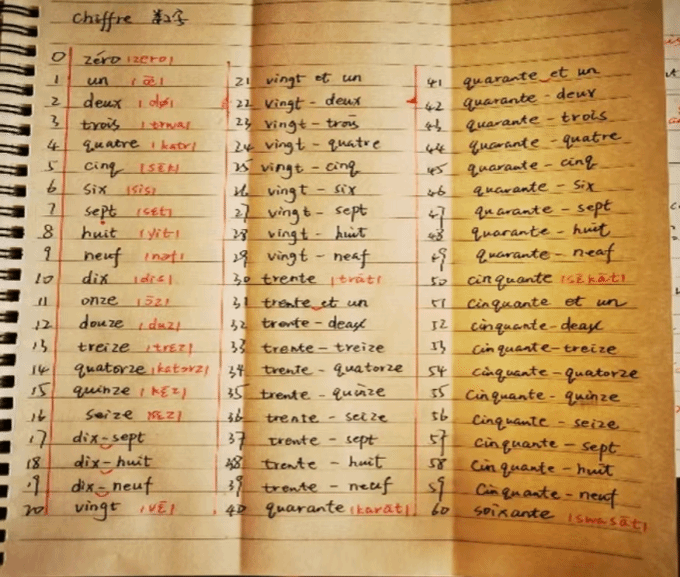 Chiffre 数字
0 zéro /zero/
1 un
2 deux /dø/
3 trois /trwa/
4 quatre /katr/
5 cinq /sɛ̃k/
6 six /sis/
7 sept /sɛt/
8 huit /ɥit/
9 neuf /nœf/
10 dix /dis/
11 onze /ɔ̃z/
12 douze /duz/
13 treize /trɛz/
14 quatorze /katorz/
15 quinze /kɛ̃z/
16 seize /sɛz/
17 dix-sept
18 dix-huit
19 dix-neuf
20 vingt /vɛ̃/
21 vingt et un
22 vingt-deux
23 vingt-trois
24 vingt-quatre
25 vingt-cinq
26 vingt-six
27 vingt-sept
28 vingt-huit
29 vingt-neuf
30 trente /trɑ̃t/
31 trente et un
32 trente-deux
33 trente-treize
34 trente-quatorze
35 trente-quinze
36 trente-seize
37 trente-sept
38 trente-huit
39 trente-neuf
40 quarante /karɑ̃t/
41 quarante et un
42 quarante-deux
43 quarante-trois
44 quarante-quatre
45 quarante-cinq
46 quarante-six
47 quarante-sept
48 quarante-huit
49 quarante-neuf
50 cinquante /sɛ̃kɑ̃t/
51 cinquante et un
52 cinquante-deux
53 cinquante-treize
54 cinquante-quatorze
55 cinquante-quinze
56 cinquante-seize
57 cinquante-sept
58 cinquante-huit
59 cinquante-neuf
60 soixante /swasɑ̃t/